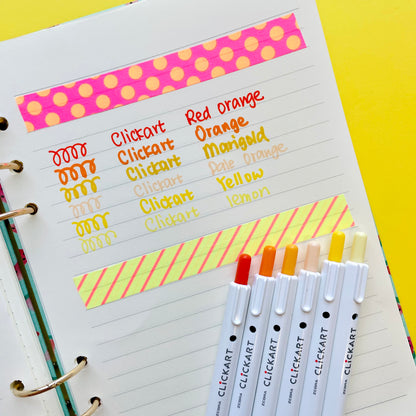 Clickart Red Orange
Clickart Orange
Clickart Marigold
Clickart Pale Orange
Clickart Yellow
Clickart lemon
ZEBRA CLiCKART
ZEBRA CLiCKART
ZEBRA CLiCKART
ZEBRA CLiCKART
ZEBRA CLiCKART
ZEBRA CLiCKART